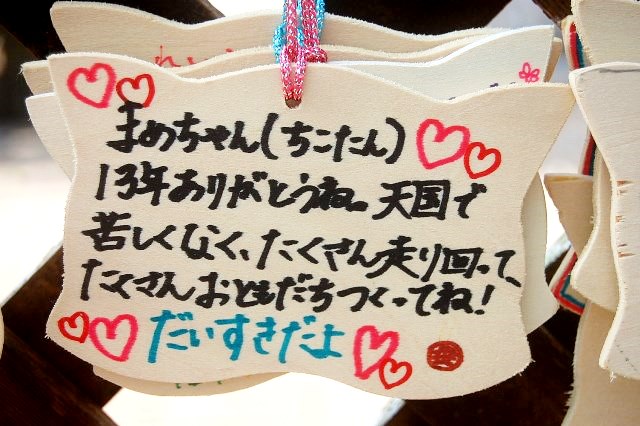 まめちゃん(ちこたん)
13年ありがとうね。天国で
苦しくなく、たくさん走り回って、
たくさんおともだちつくってね!
だいすきだよ